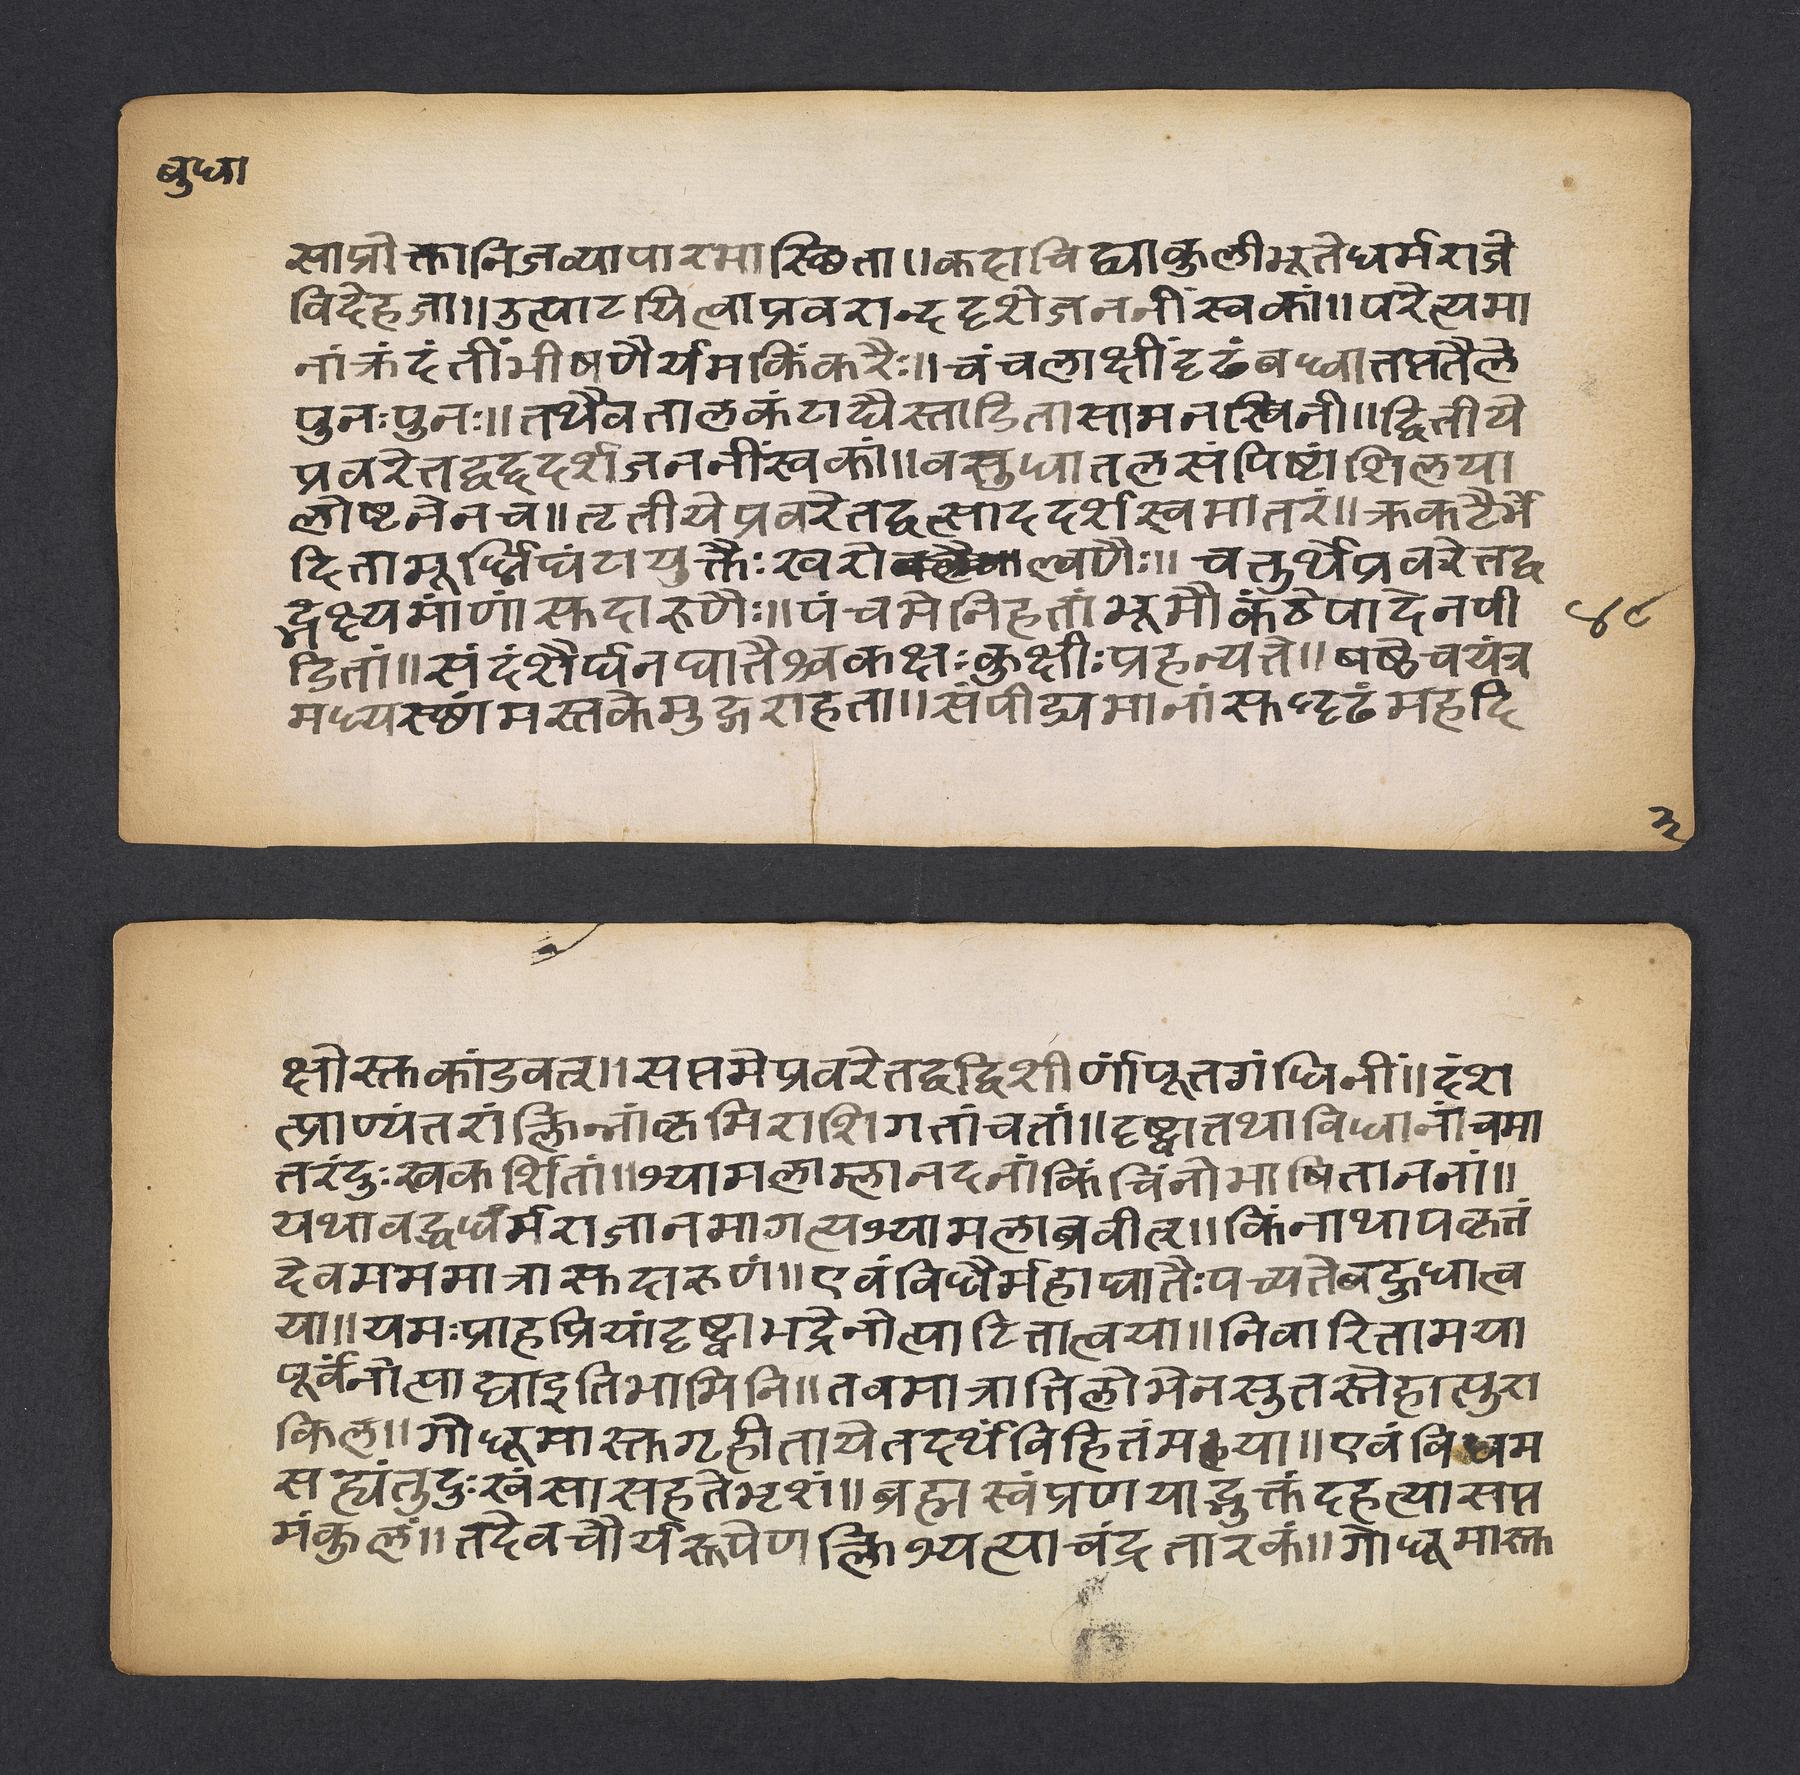 बुधा
साप्रोक्तानिजव्यापारमास्थिता॥कदाचिद्व्याकुलीभूतेधर्मराजे
विदेहजा॥उत्पाटयित्वाप्रवरान्ददृशेजननींस्वकां॥परेत्यमा
नांक्रंदंतींभीषणैर्यमकिंकरैः॥चंचलाक्षींदृढंबध्वातप्ततैले
पुनःपुनः॥तथैवतालकंटाद्यैस्ताडितासामनस्विनी॥द्वितीये
प्रवरेतद्वद्ददर्शजननींस्वकां॥वसुधातलसंपिष्टांशिलया
लोष्टनेनच॥तृतीयेप्रवरेतद्वत्साददर्शस्वमातरं॥क्रकटैर्भे
दितामूर्ध्निघंटायुक्तैःखरोल्वणैः॥चतुर्थेप्रवरेतद्व
द्भक्ष्यमांणांसुदारुणैः॥पंचमेनिहतांभूमौकंठेपादेनपी
४९
डितां॥संदंशैर्घनघातैश्चकक्षःकुक्षीःप्रहन्यते॥षष्ठेचयंत्र
मध्यस्थांमस्तकेमुद्गराहता॥संपीड्यमानांसुदृढंमहदि
३
क्षोस्तुकांडवत्॥सप्तमेप्रवरेतद्वद्विशीर्णांपूतगंधिनीं॥दंश
त्प्राण्यंतरांक्लिन्नांकृमिराशिगतांचतां॥दृष्ट्वातथाविधानांचमा
तरंदुःखकर्शितां॥श्यामलाम्लानदनांकिंचिंनोभाषिताननां॥
यथावद्धर्घर्मराजानमागत्यश्यामलाब्रवीत्॥किंनाथापकृतं
देवमममात्रासुदारुणं॥एवंविधैर्महाघातैःपच्यतेबहुधात्व
या॥यमःप्राहप्रियांदृष्ट्वाभद्रेनोत्पाटितात्वया॥निवारितामया
पूर्वंनोत्पाद्याइतिभामिनि॥तवमात्रातिलोभेनसुतस्नेहात्पुरा
किल॥गोधूमास्तुगृहीतायेतदर्थंविहितंमया॥एवंविधम
सह्यंतुदुःखंसासहतेभृशं॥ब्रह्मस्वंप्रणयाद्भुक्तंदहत्यासप्त
मंकुलं॥तदेवचौर्यरूपेणक्लिश्यत्याचंद्रतारकं॥गोधूमास्तु